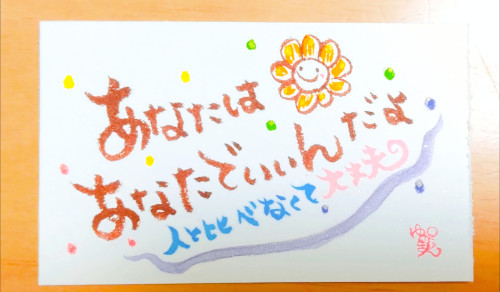 あなたは
あなたでいいんだよ
人と比べなくて大丈夫